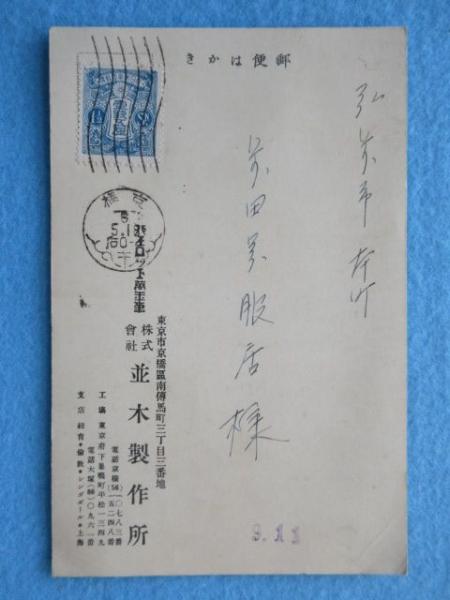 きかは便郵
弘前市本町
前田呉服店様
東京市京橋區南傳馬町三丁目三番地
株式
會社
並木製作所
電話京橋(56)〇七八三番
工場 東京府下巣鴨町平松一三四九
電話大塚(86)〇九六一番
支店 紐育・倫敦・シンガポール・上海
9.11